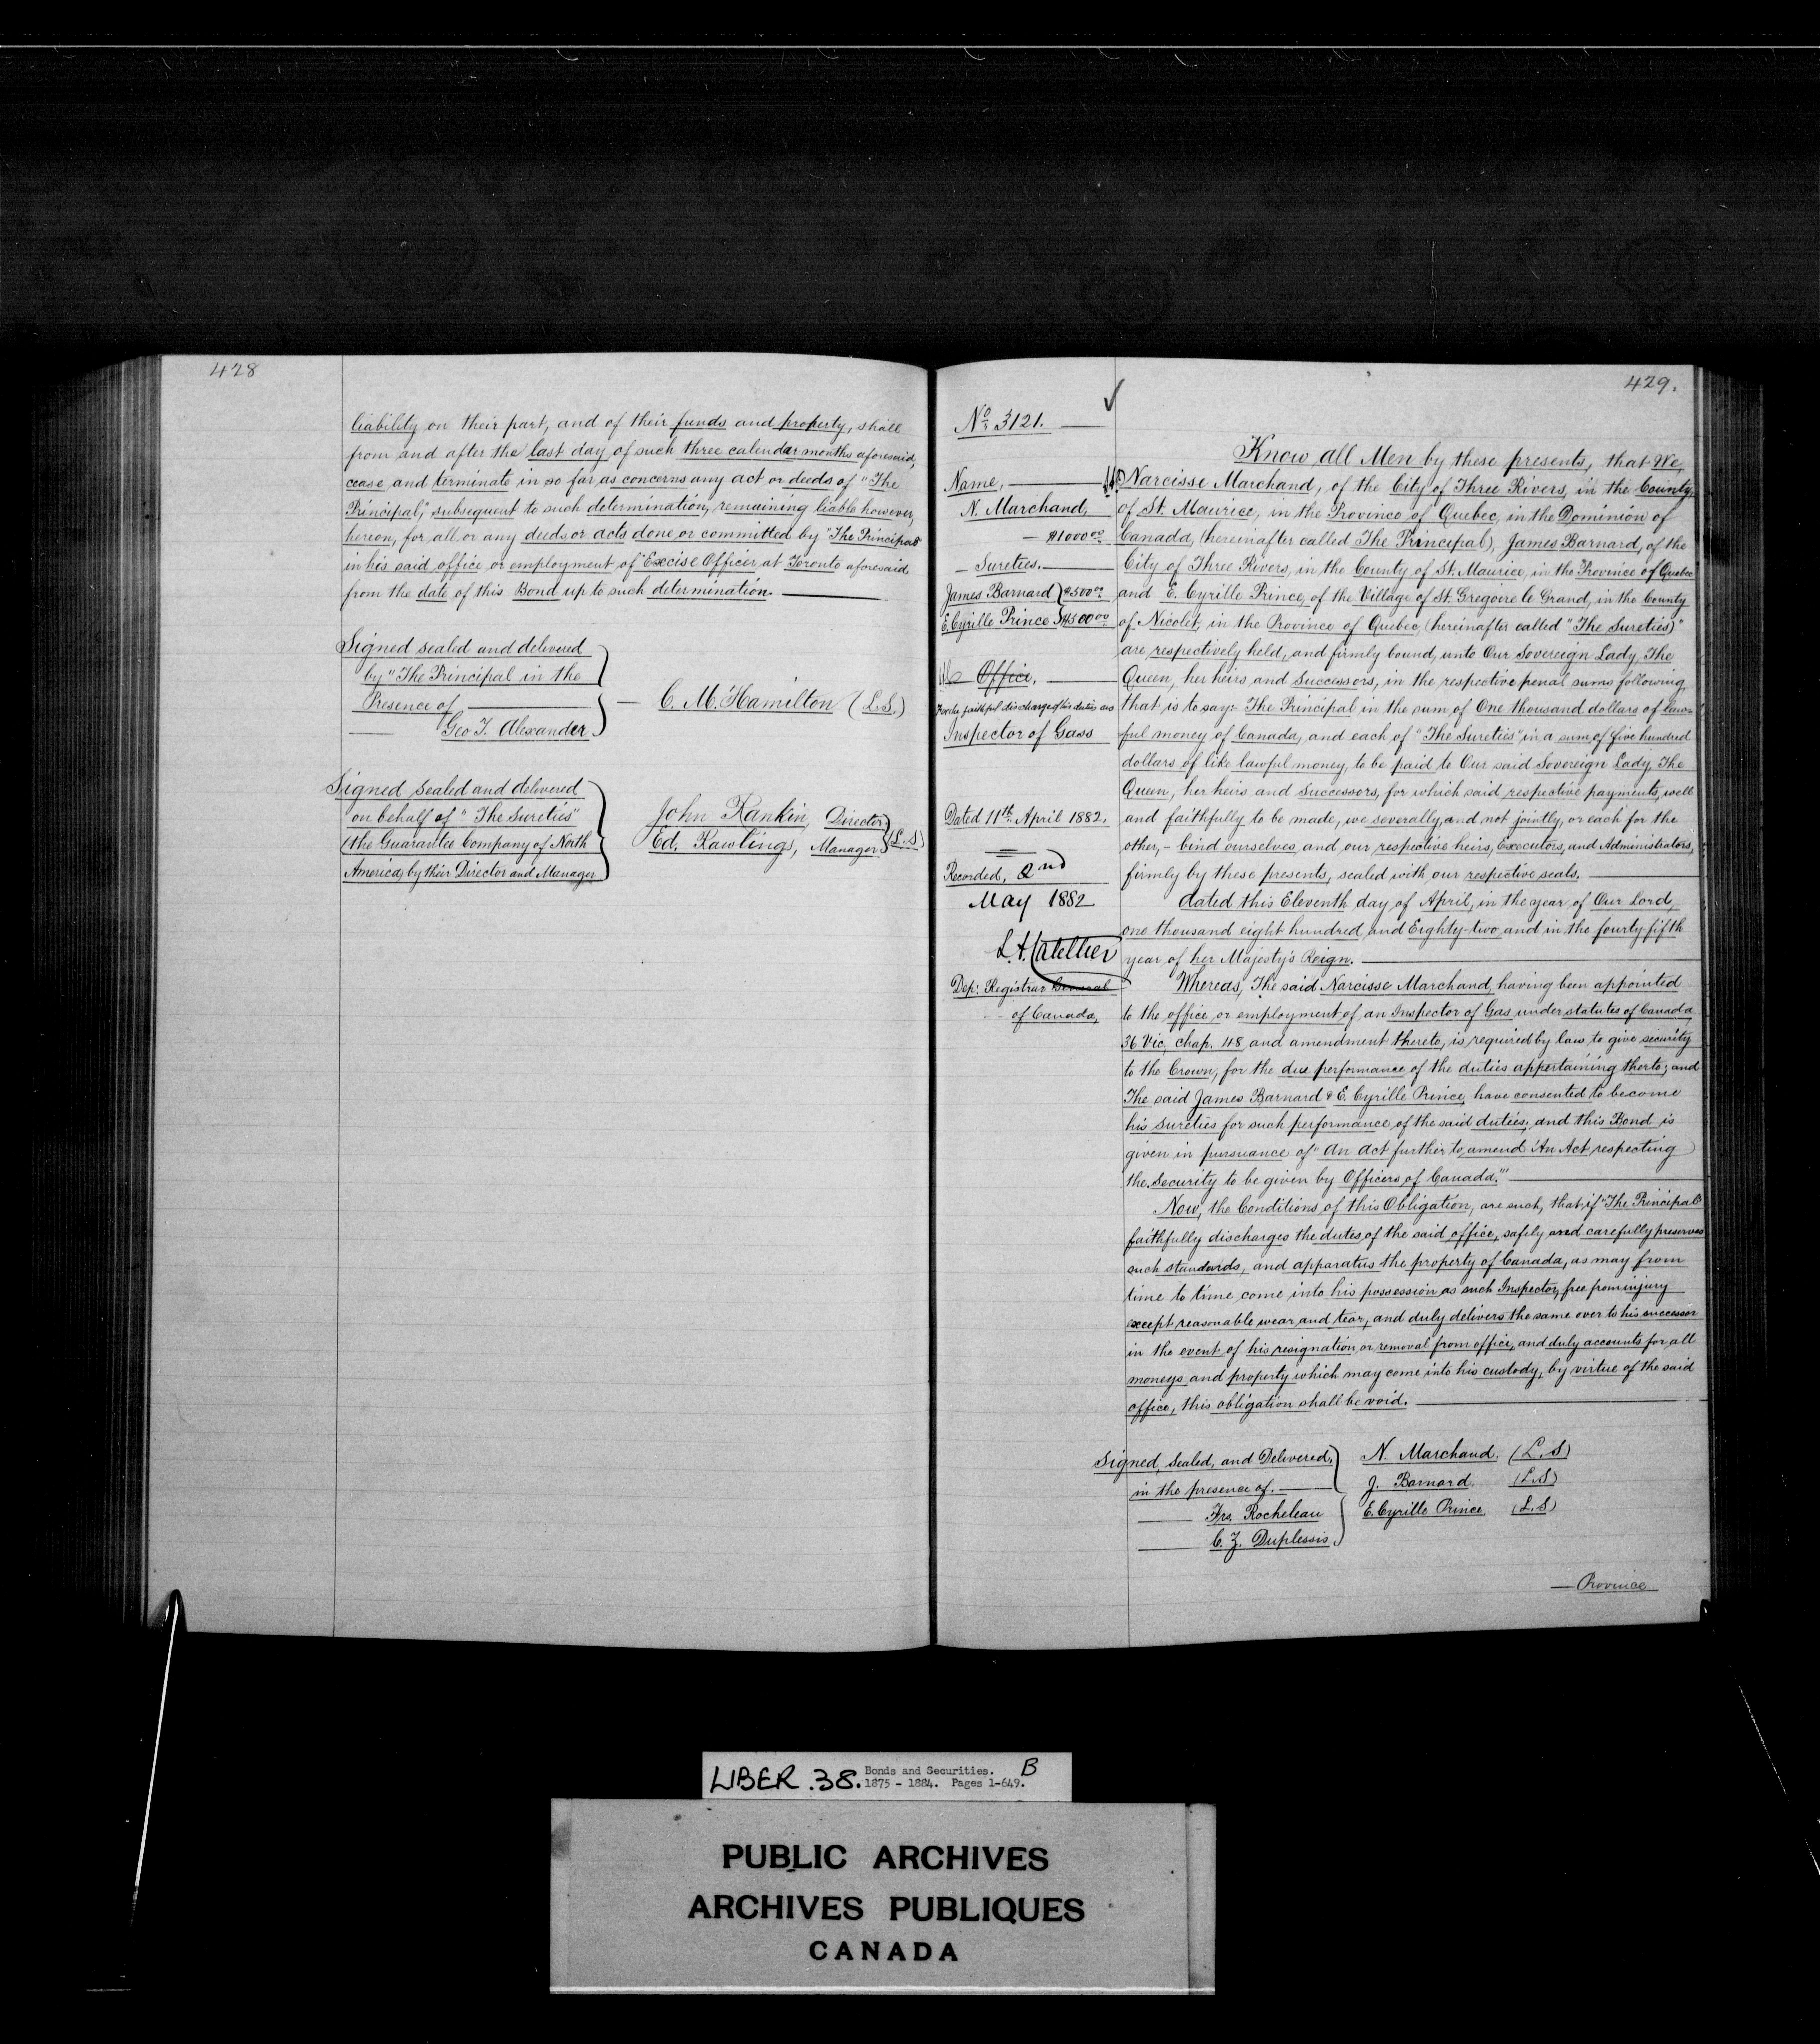 428
liability on their part, and of their funds and property, shall
from and after the last day of such three calendar months aforesaid,
cease and terminate in so far as concerns any act or deeds of "The
Principal," subsequent to such determination, remaining liable however,
hereon, for all or any deeds or acts done or committed by "The Principal"
in his said office or employment of "Excise Officer, at Toronto aforesaid
from the date of this Bond up to such determination.
Signed sealed and delivered
by "The Principal in the
Presence of
Geo T. Alexander
C. M. Hamilton (L.S.)
Signed sealed and delivered
on behalf of "The Sureties"
(the Guarantee Company of North
America, by their Director and Manager
John Rankin, Director
Ed. Rawlings, Manager (L.S)
429.
No. 3121.
Name,
N. Marchand,
$1000.00
Sureties.
James Barnard $500.00
E. Cyrille Prince $500.00
Office.
For the faithful discharge of his duties as
Inspector of Gass
Dated 11th April 1882.
Recorded, 2nd
May 1882
L. A. Catellier
Dep: Registrar General
of Canada,
Know all Men by these presents, that We,
Narcisse Marchand, of the City of Three Rivers, in the County
of St. Maurice, in the Province of Quebec, in the Dominion of
Canada, (hereinafter called The Principal), James Barnard, of the
City of Three Rivers, in the County of St. Maurice, in the Province of Quebec
and E. Cyrille Prince, of the Village of St. Gregoire le Grand, in the County
of Nicolet, in the Province of Quebec, (hereinafter called "The Sureties)"
are respectively held, and firmly bound, unto Our Sovereign Lady, The
Queen, her heirs and Successors, in the respective penal sums following,
that is to say:- The Principal in the sum of One thousand dollars of law-
ful money of Canada, and each of "The Sureties" in a sum of five hundred
dollars of like lawful money, to be paid to Our said Sovereign Lady, The
Queen, her heirs and Successors, for which said respective payments, well
and faithfully to be made, we severally, and not jointly, or each for the
other,- bind ourselves, and our respective heirs, Executors, and Administrators,
firmly by these presents, sealed with our respective seals.
dated this Eleventh day of April, in the year of Our Lord,
one thousand eight hundred and Eighty-two, and in the fourty fifth
year of her Majesty's Reign.
Whereas, The said Narcisse Marchand, having been appointed
to the office or employment of an Inspector of Gas under statutes of Canada
36 Vic, chap. 48, and amendment thereto, is required by law, to give security
to the Crown, for the due performance of the duties appertaining therto; and
The said James Barnard & E. Cyrille Prince, have consented to become
his sureties for such performance of the said duties; and this Bond is
given in pursuance of "An Act further to amend 'An Act respecting
the Security to be given by Officers of Canada."'
Now, the Conditions of this Obligation, are such, that if "The Principal"
faithfully discharges the dutes of the said office, safely and carefully preserves
such standards, and apparatus the property of Canada, as may from
time to time come into his possession as such Inspector, free from injury
except reasonable wear and tear, and duly delivers the same over to his successor
in the event of his resignation, or removal from office, and duly accounts for all
moneys, and property which may come into his custody, by virtue of the said
office, this obligation shall be void.
Signed, Sealed, and Delivered,
in the presence of.
Frs. Rocheleau
C. Z. Duplessis
N. Marchand. (L.S)
J. Barnard. (L.S)
E. Cyrille Prince (L.S)
Province
LIBER .38. Bonds and Securities. B
1875 - 1884. Pages 1-649.
PUBLIC ARCHIVES
ARCHIVES PUBLIQUES
CANADA